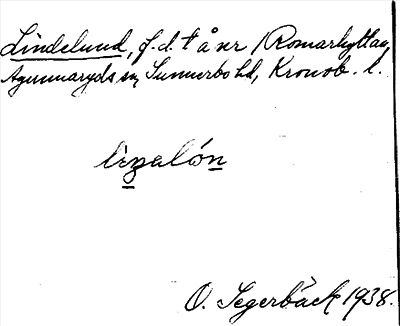 Lindelund, f.d. t å nr Romarhyttan,
Agunnaryds sn, Sunnerbo hd, Kronob. l.
lizalón
O. Segerbäck 1938.